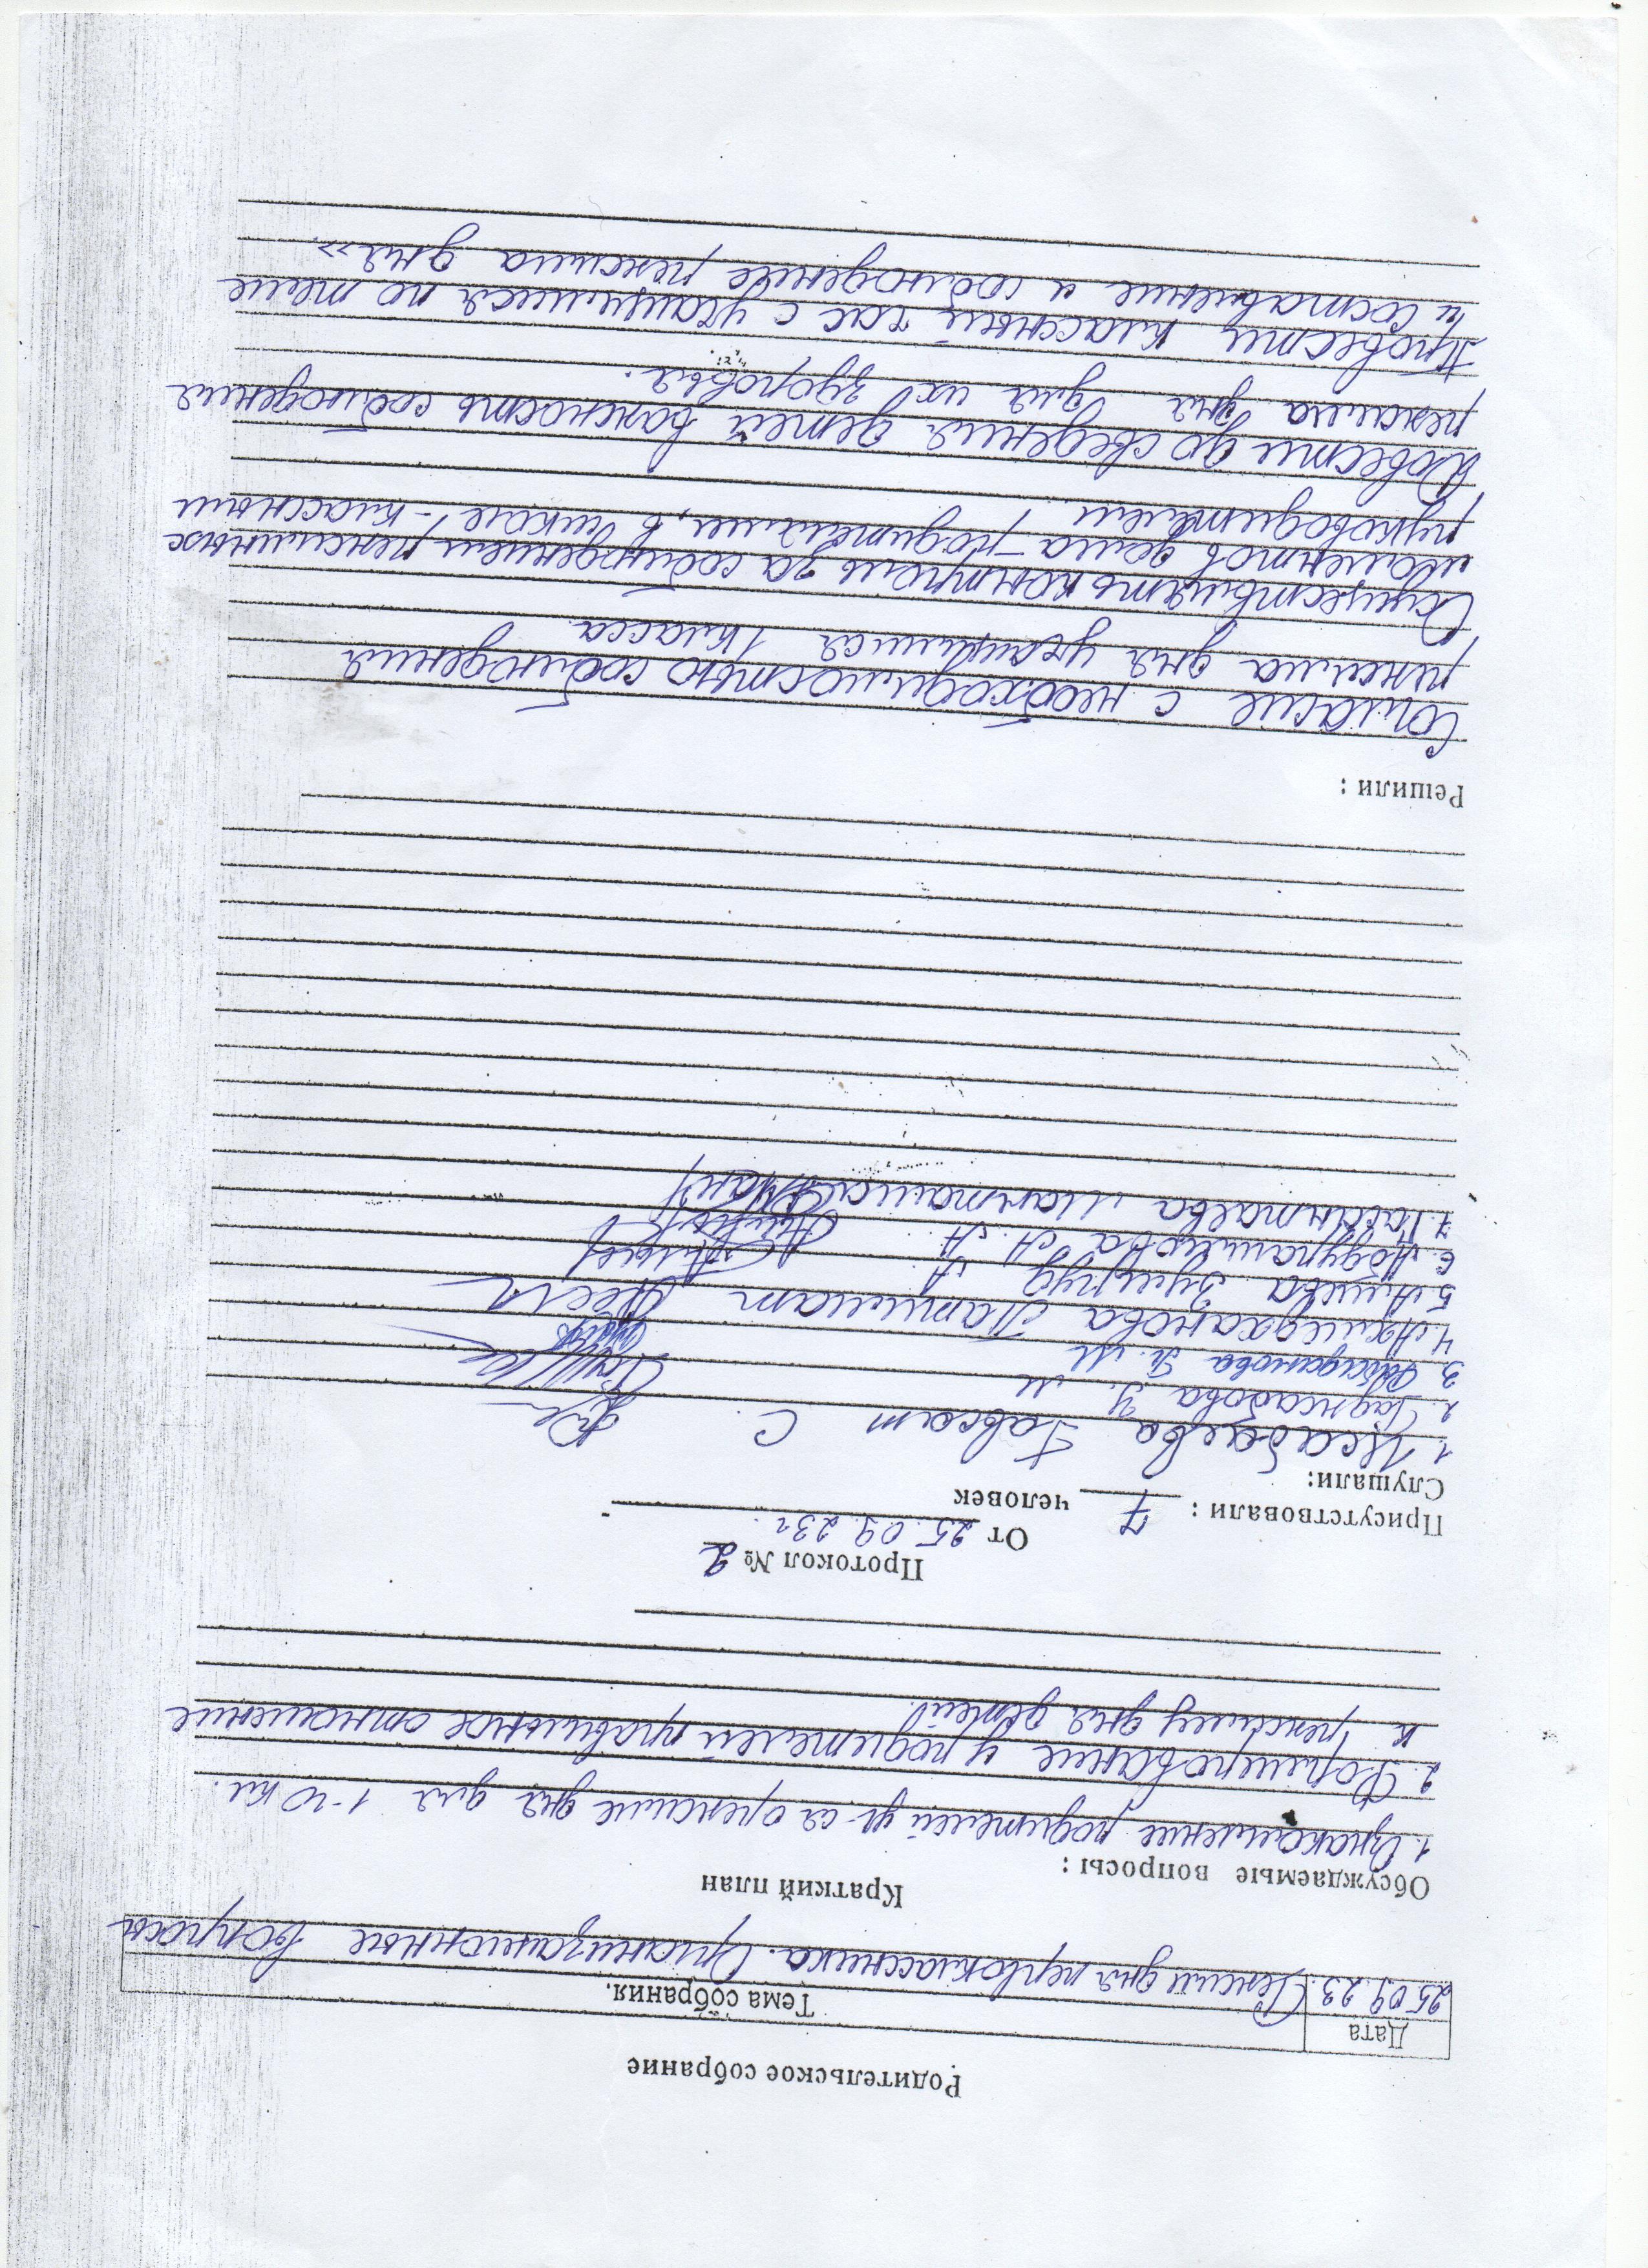 Родительское собрание
Дата Тема собрания.
25.09.23. Режим дня первоклассника. Организационные вопросы
Краткий план
Обсуждаемые вопросы :
1. Ознакомление родителей уч-ся о режиме дня для 1-го кл.
2. Формирование у родителей правильное отношение
к режиму дня детей.
Протокол № 2
От 25.09.23г.
Присутствовали : 7 человек
Слушали:
1. Исабаева Гавсат С.
2. Гаджиабова У. М
3. П. М
4. Ахмедханова Патимат
5. Алиева Зульгуд А.
6. Абдурашидова А. А.
7. Гавантаева
Решили :
Согласие с необходимостью соблюдения
режима дня учащимися 1 класса.
Осуществлять контроль за соблюдением режимных
моментов дома - родителями, в школе - классным
руководителем.
Довести до сведения детей важность соблюдения
режима дня для их здоровья.
Провести классный час с учащимися по теме
"Составление и соблюдение режима дня»